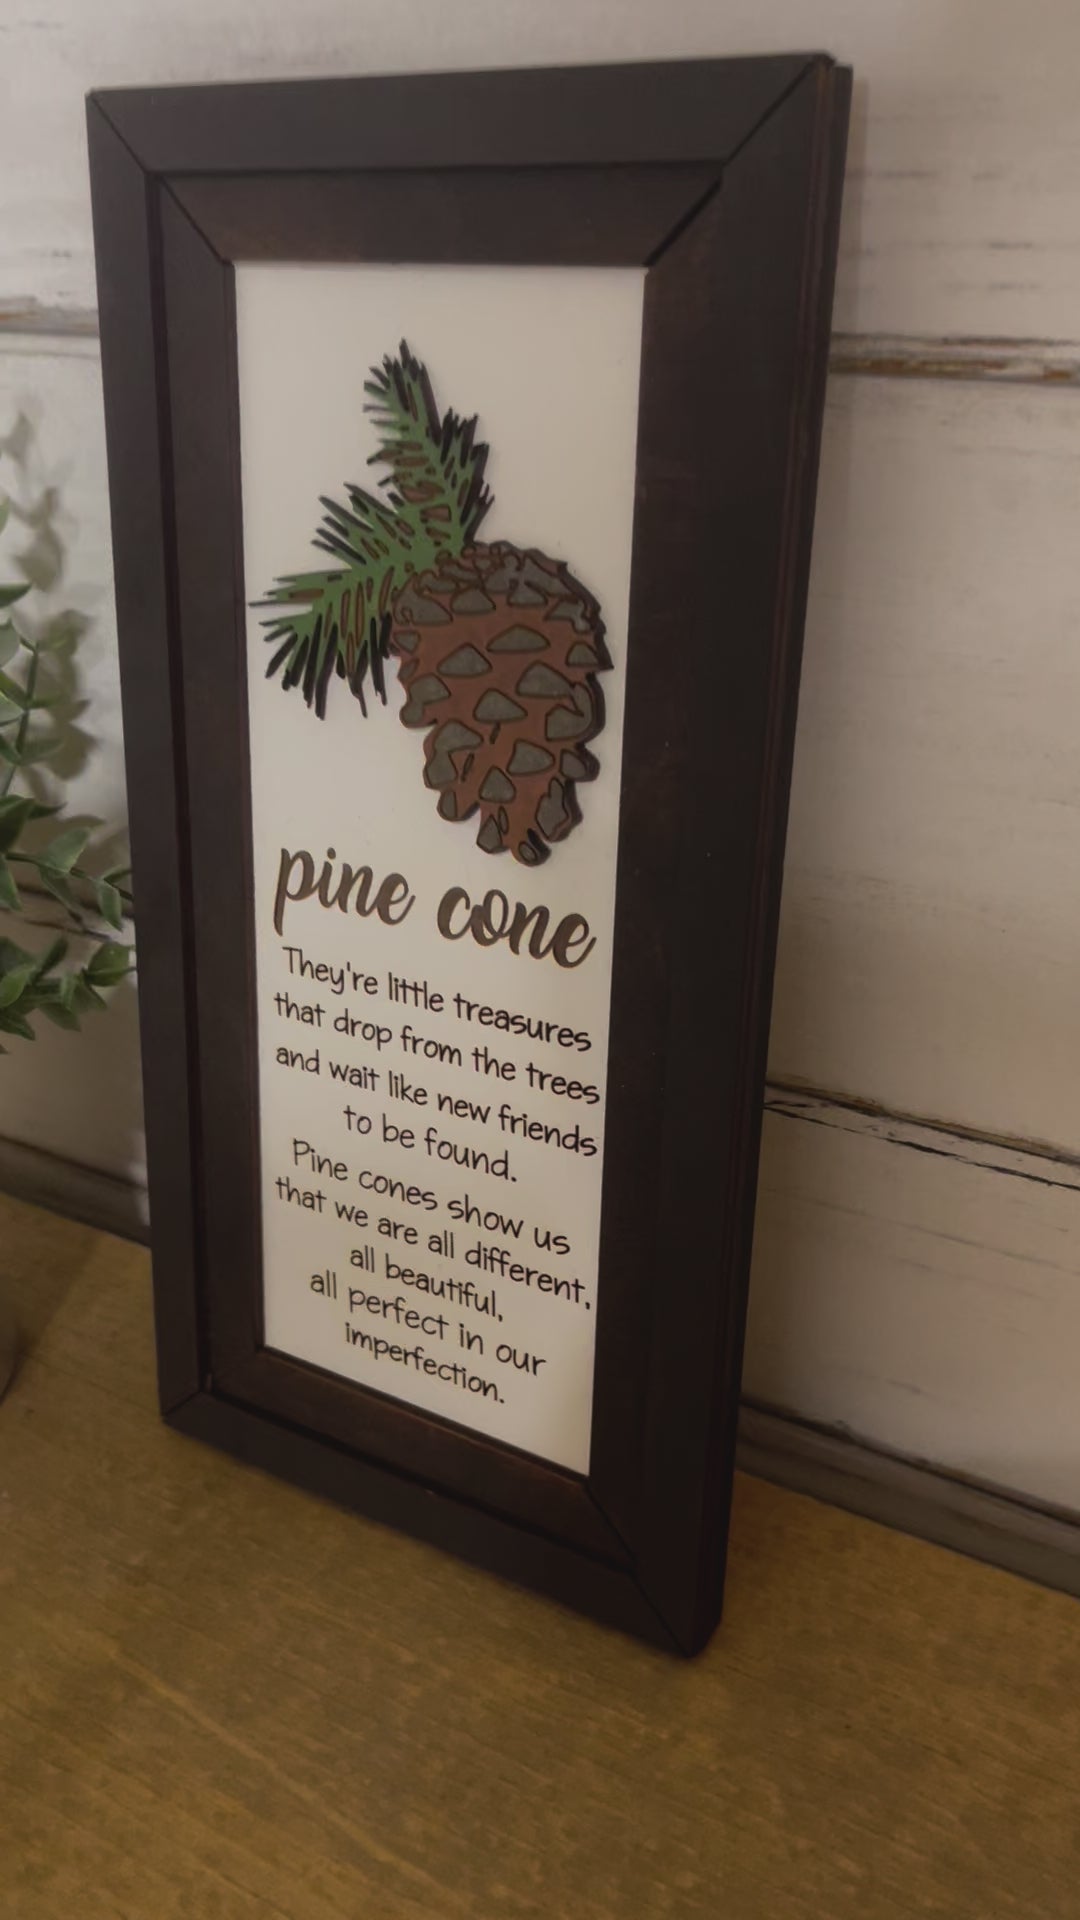 pine cone
They're little treasures
that drop from the trees
and wait like new friends
to be found.
Pine cones show us
that we are all different,
all beautiful,
all perfect in our
imperfection.